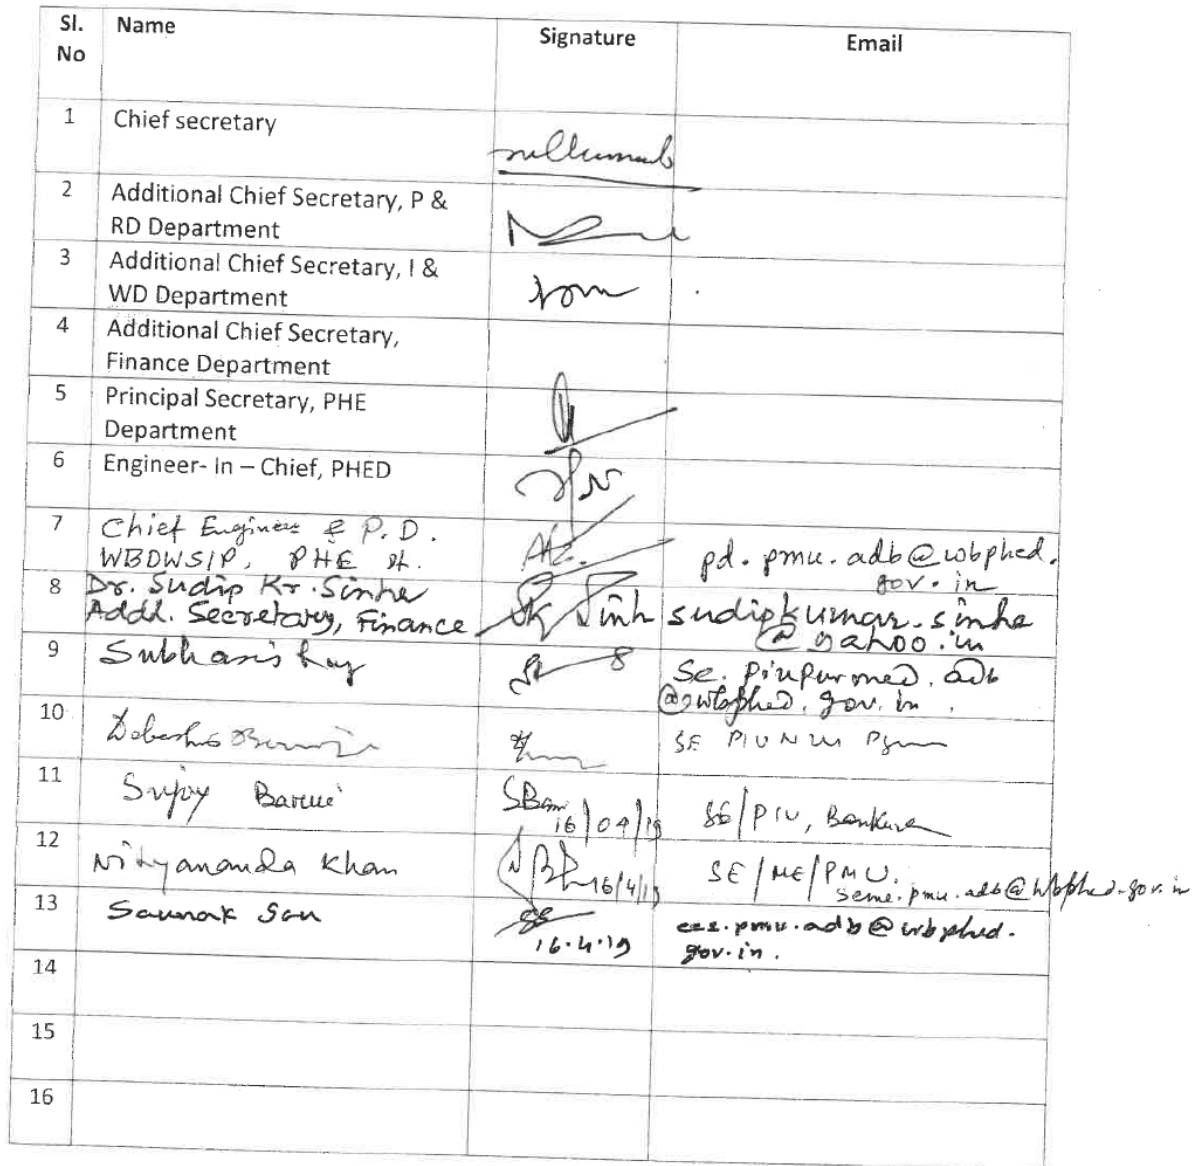 Sl. No Name Signature Email
1 Chief secretary
2 Additional Chief Secretary, P &
RD Department
3 Additional Chief Secretary, I &
WD Department
4 Additional Chief Secretary,
Finance Department
5 Principal Secretary, PHE
Department
6 Engineer- In – Chief, PHED
7 Chief Engineer & P.D.
WBDWSIP, PHE Dt. pd.pmu.adb@wbphed.
gov.in
8 Dr. Sudip Kr. Sinha
Addl. Secretary, Finance sudipkumar.sinha
@yahoo.in
9 Subhasis Ray Se.
gov.in.
10 SE PIU
11 Sujoy Barui 16/04/19 SE/PIU, Bankura
12 Nityananda Khan 16/4/19 SE/ME/PMU.
seme.pmu.adb@wbphed.gov.in
13 Saunak Sau 16.4.19 .pmu.adb@wbphed.
gov.in.
14
15
16